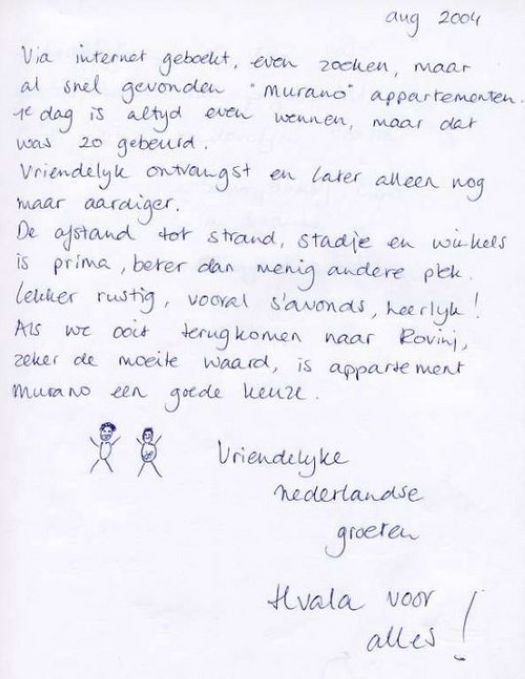 aug 2004
Via internet geboekt, even zoeken, maar
al snel gevonden "Murano" appartementen.
1e dag is altyd even wennen, maar dat
was zo gebeurd.
Vriendelyk ontvangst en later alleen nog
maar aardiger.
De afstand tot strand, stadje en winkels
is prima, beter dan menig andere plek.
Lekker rustig, vooral s'avonds, heerlyk!
Als we ooit terugkomen naar Rovinj,
zeker de moeite waard, is appartement
Murano een goede keuze.
Vriendelyke
nederlandse
groeten
Hvala voor
alles!